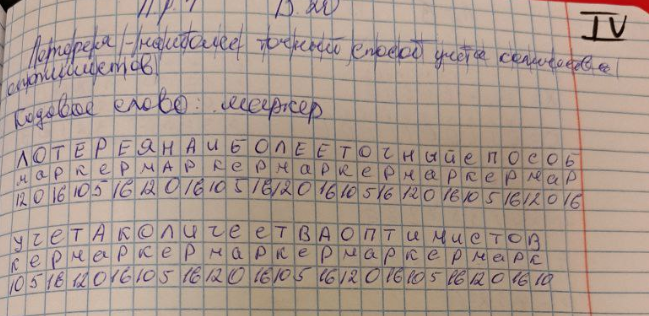 Пр. 1 В 20
IV
Лотерея - наиболее точный способ учёта количества
оптимистов
Кодовое слово: маркер
ЛОТЕРЕЯНАИБОЛЕЕТОЧНЫЙСПОСОБ
МАРКЕРМАРКЕРМАРКЕРМАРКЕРМАР
12 0 16 10 5 16 12 0 16 10 5 16 12 0 16 10 5 16 12 0 16 10 5 16 12 0 16
УЧЕТАКОЛИЧЕСТВАОПТИМИСТОВ
КЕРМАРКЕРМАРКЕРМАРКЕРМАРК
10 5 16 12 0 16 10 5 16 12 0 16 10 5 16 12 0 16 10 5 16 12 0 16 10